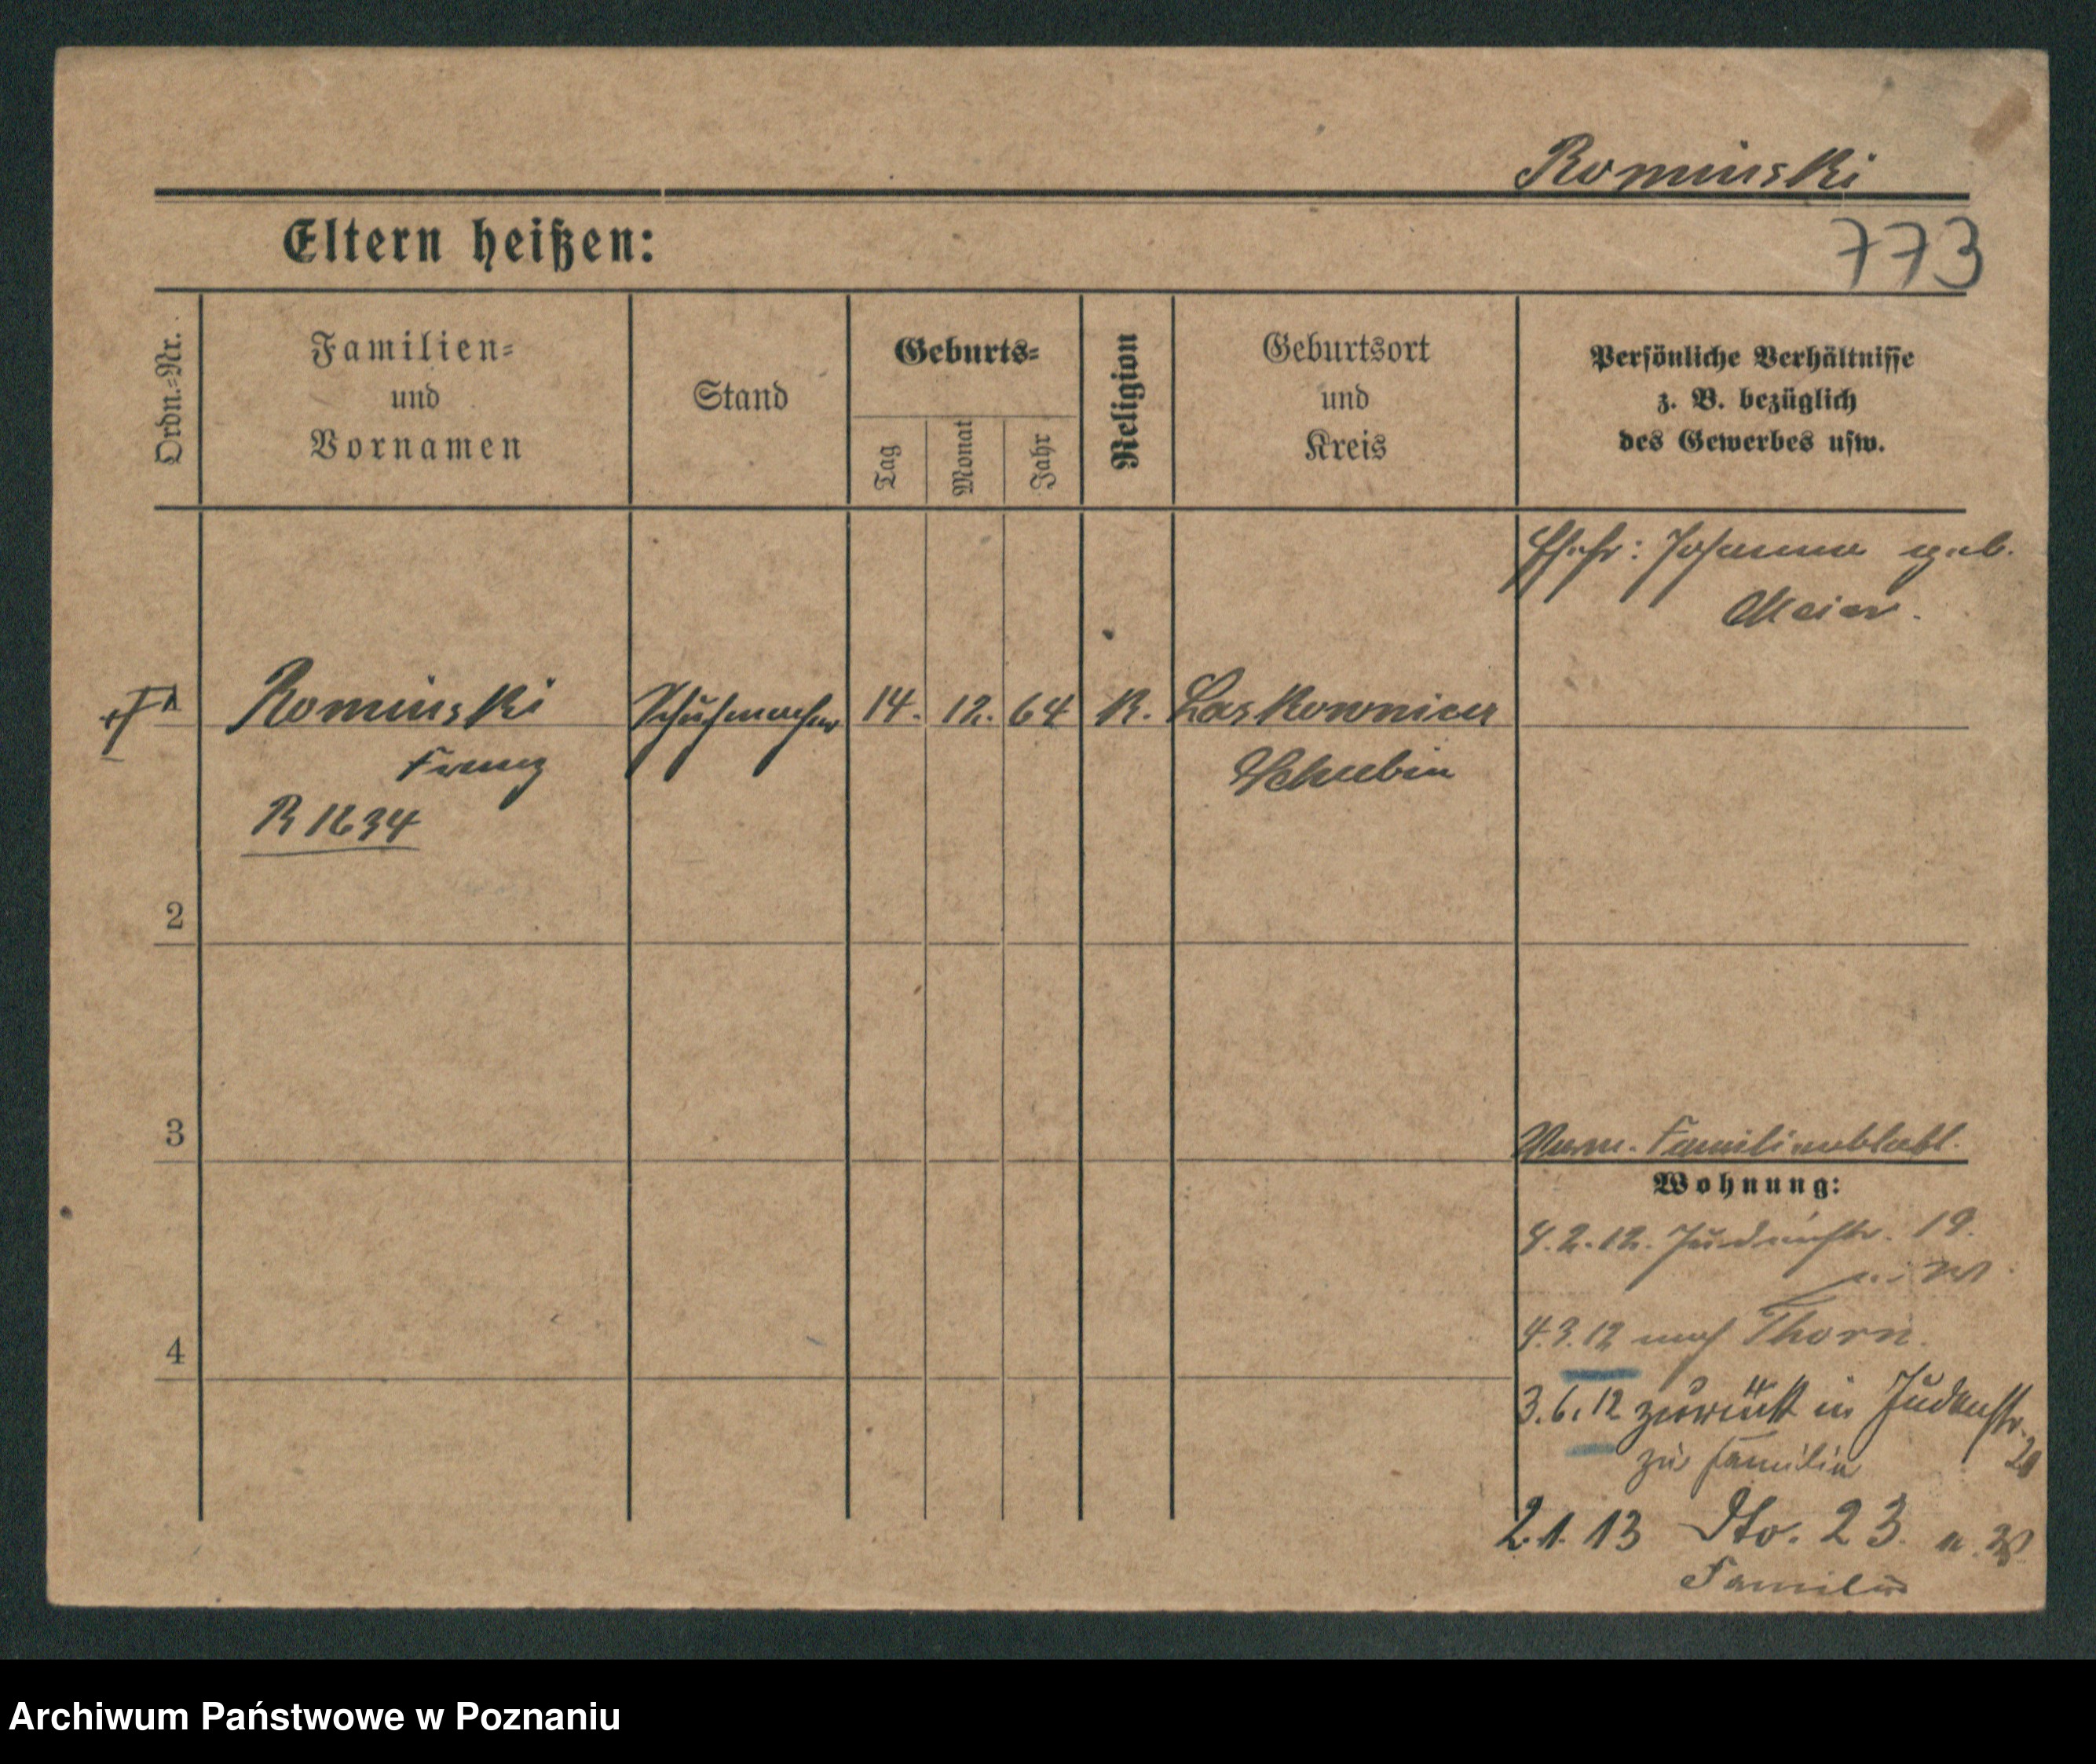 Rominski
Eltern heißen:
773
Ordn.-Nr.
Familien-
und
Vornamen
Stand
Geburts-
Tag
Monat
Jahr
Religion
Geburtsort
und
Kreis
Persönliche Verhältnisse
z. B. bezüglich
des Gewerbes usw.
Ehefr: Johanna geb.
Meier.
1
Rominski
Schuhmacher
14. 12. 64
K.
Laskownica
Franz
Schubin
R 1234
2
3
Familienblatt.
Wohnung:
4
4.2.12. Judenstr. 19.
4.3.12 nach Thorn.
3.6.12 zurück in Judenstr.
zur Familie
2.1.13 Dto. 23.
Familie
Archiwum Państwowe w Poznaniu